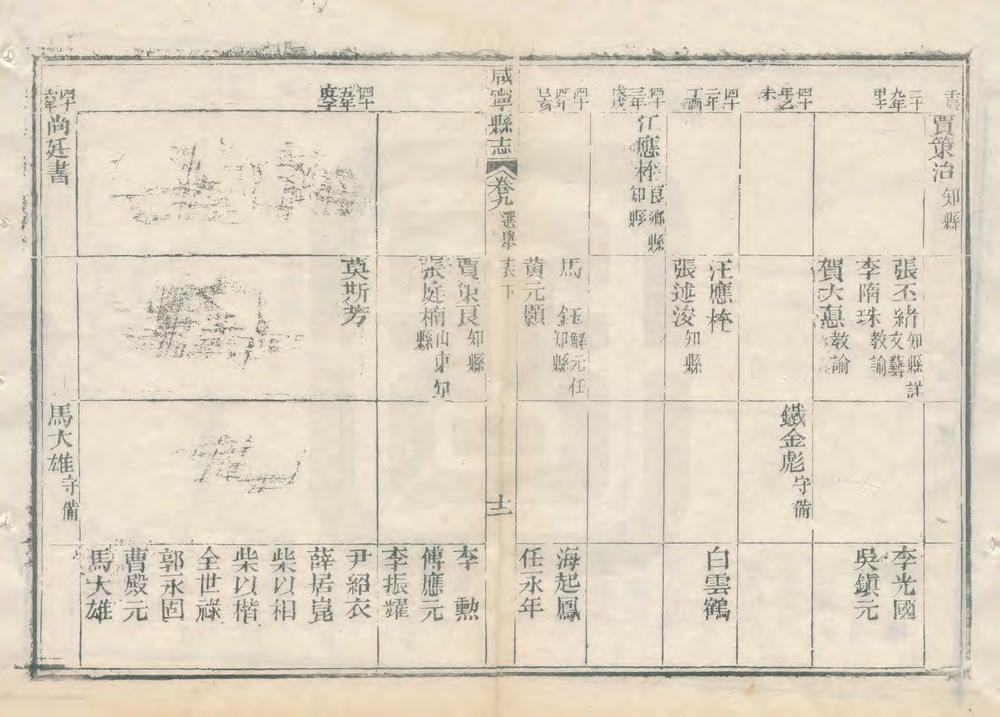 賈策治知縣
三十九年甲午
張丕緒知縣詳文藝
李隋珠教諭
賀大憲教諭
李光國
吳鎮元
四十年乙未
鐵金彪守備
四十二年丁酉
汪應栓
張述浚知縣
白雲鶴
四十三年戊戌
江應栓良鄉縣知縣
四十四年己亥
馬鈺解元任知縣
黃元顥
海起鳳
任永年
咸寧縣志
卷九選舉表下
十二
賈策良知縣
張庭楠山東知縣
李勳
傅應元
李振耀
四十五年庚子
莫斯芳
尹紹衣
薛居崑
柴以相
柴以楷
全世祿
郭永固
曹殿元
馬大雄
尚廷書
馬大雄守備